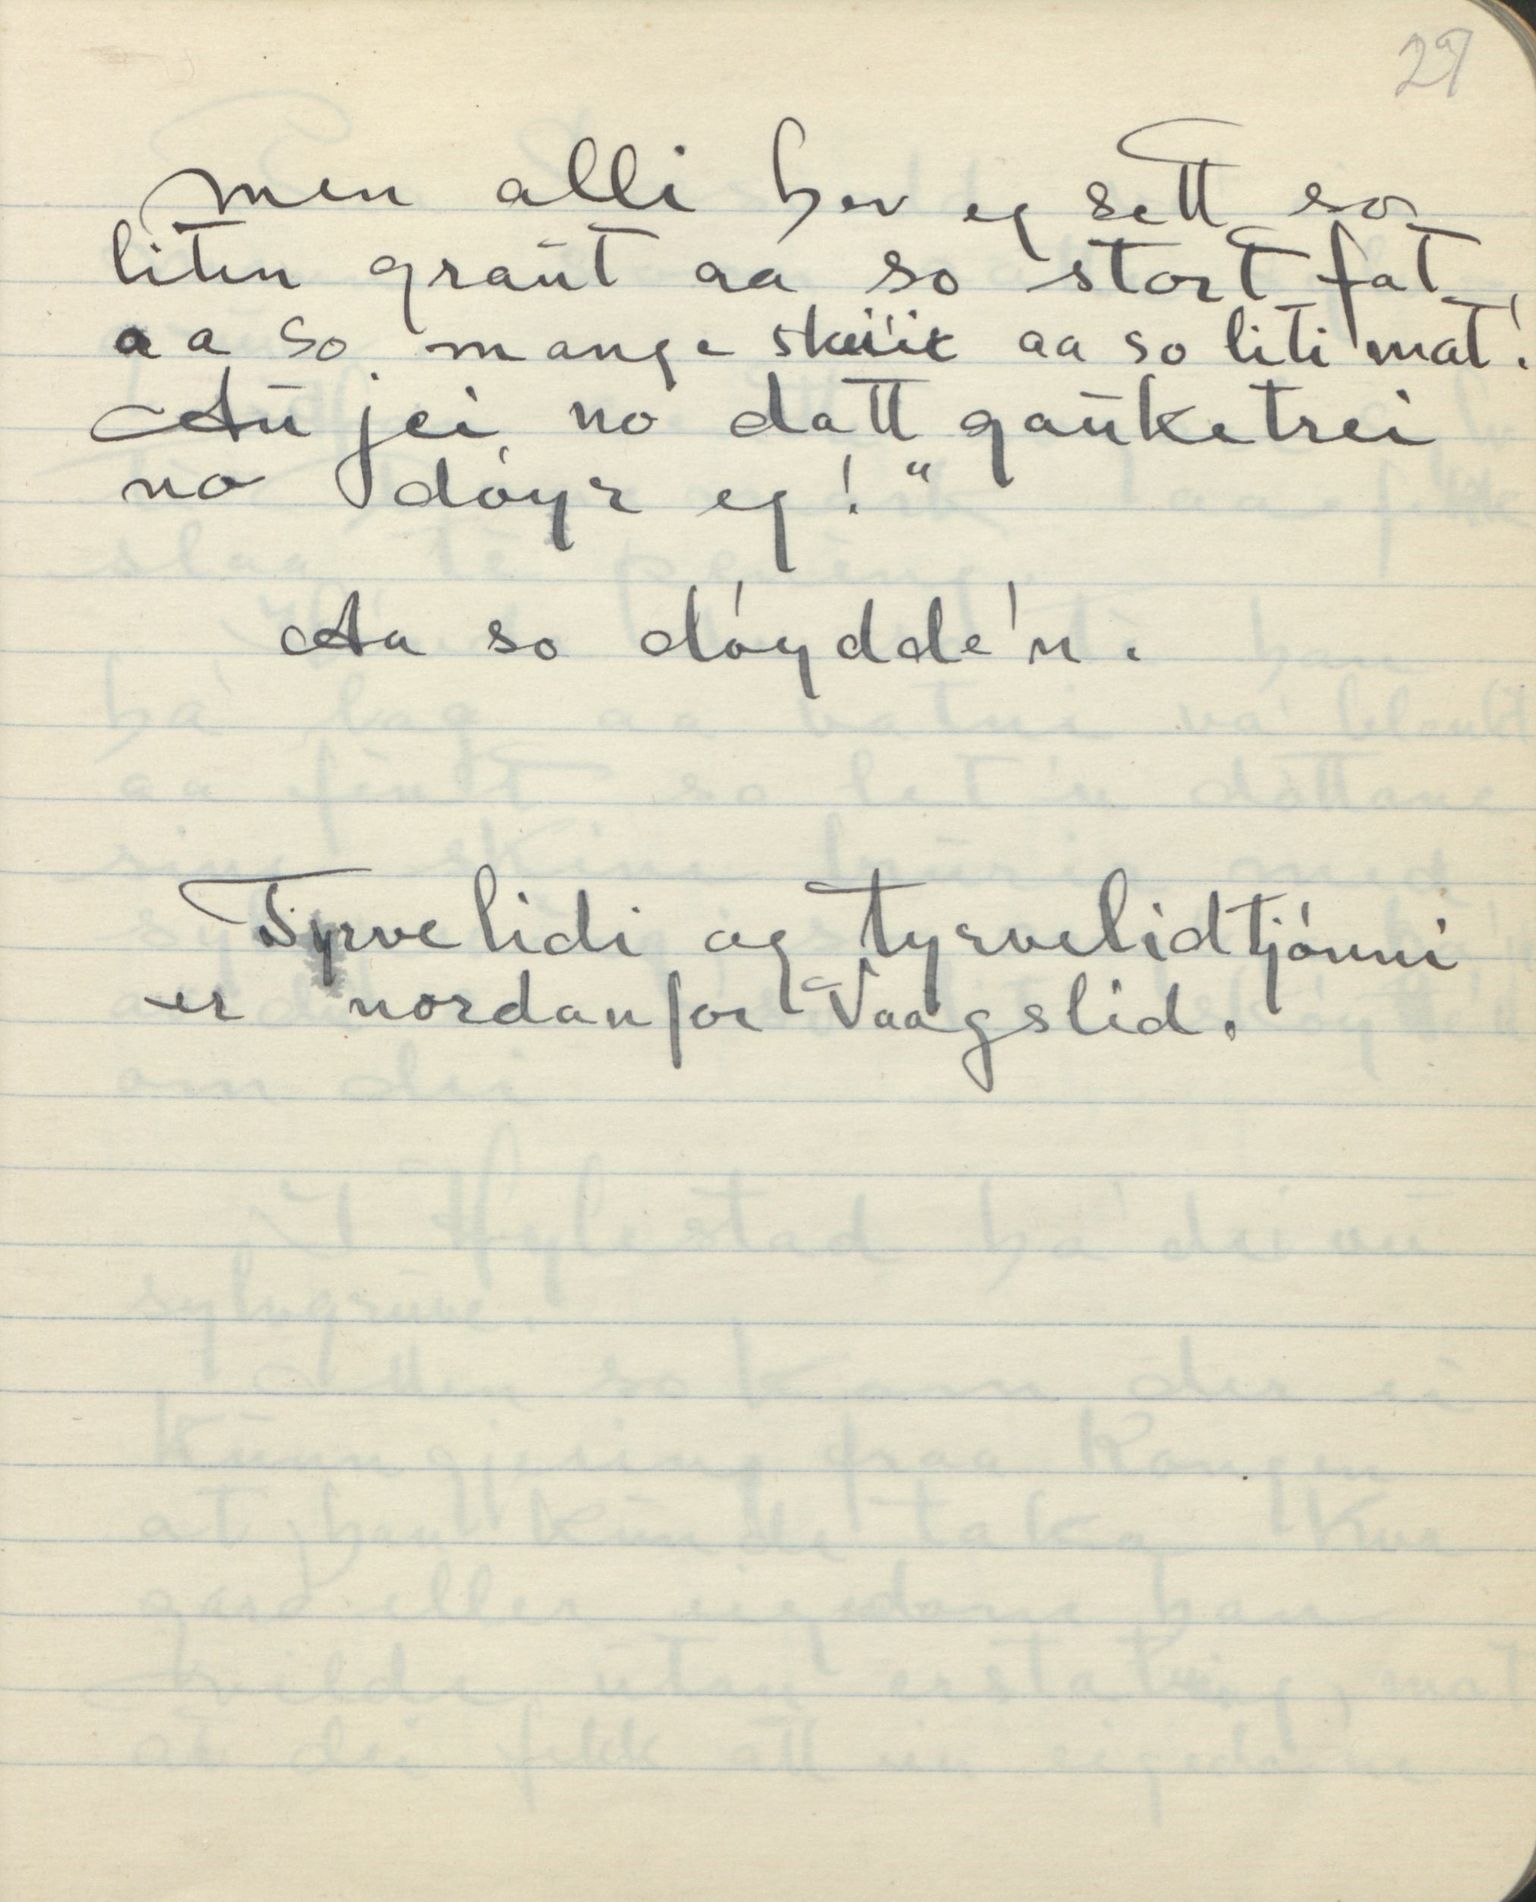 29
men alli hev eg sett so
liten graut aa so stort fat,
aa so mange skeiir aa so liti mat!
Au jei, no datt gauketrei
no døyr eg!"
Aa so døydde'n.
Tyrvelidi og Tyrvelidtjónni
er nordanfor Vaagslid.